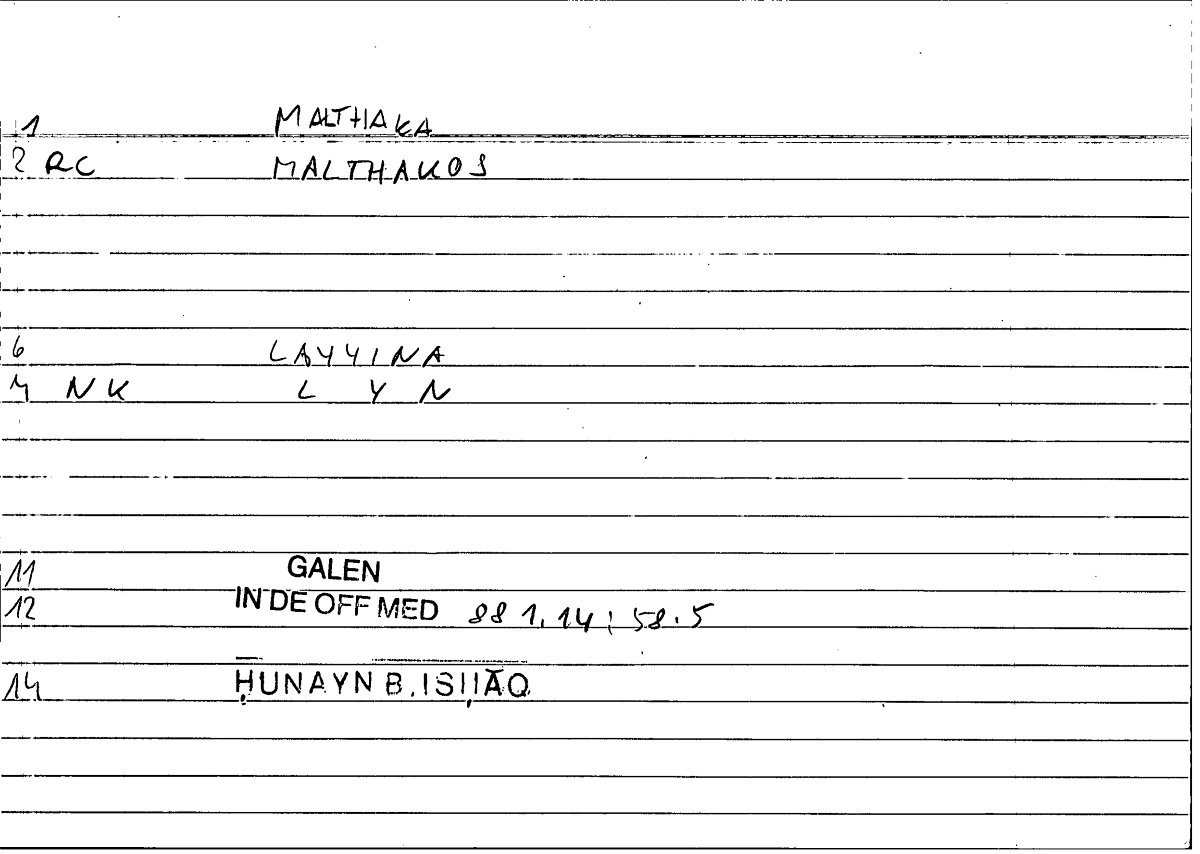 1 MALTHAKA
2 RC MALTHAKOS
6 LAYYINA
7 NK L Y N
11 GALEN
12 IN DE OFF MED 881.14 ; 58.5
14 ḤUNAYN B. ISḤĀQ